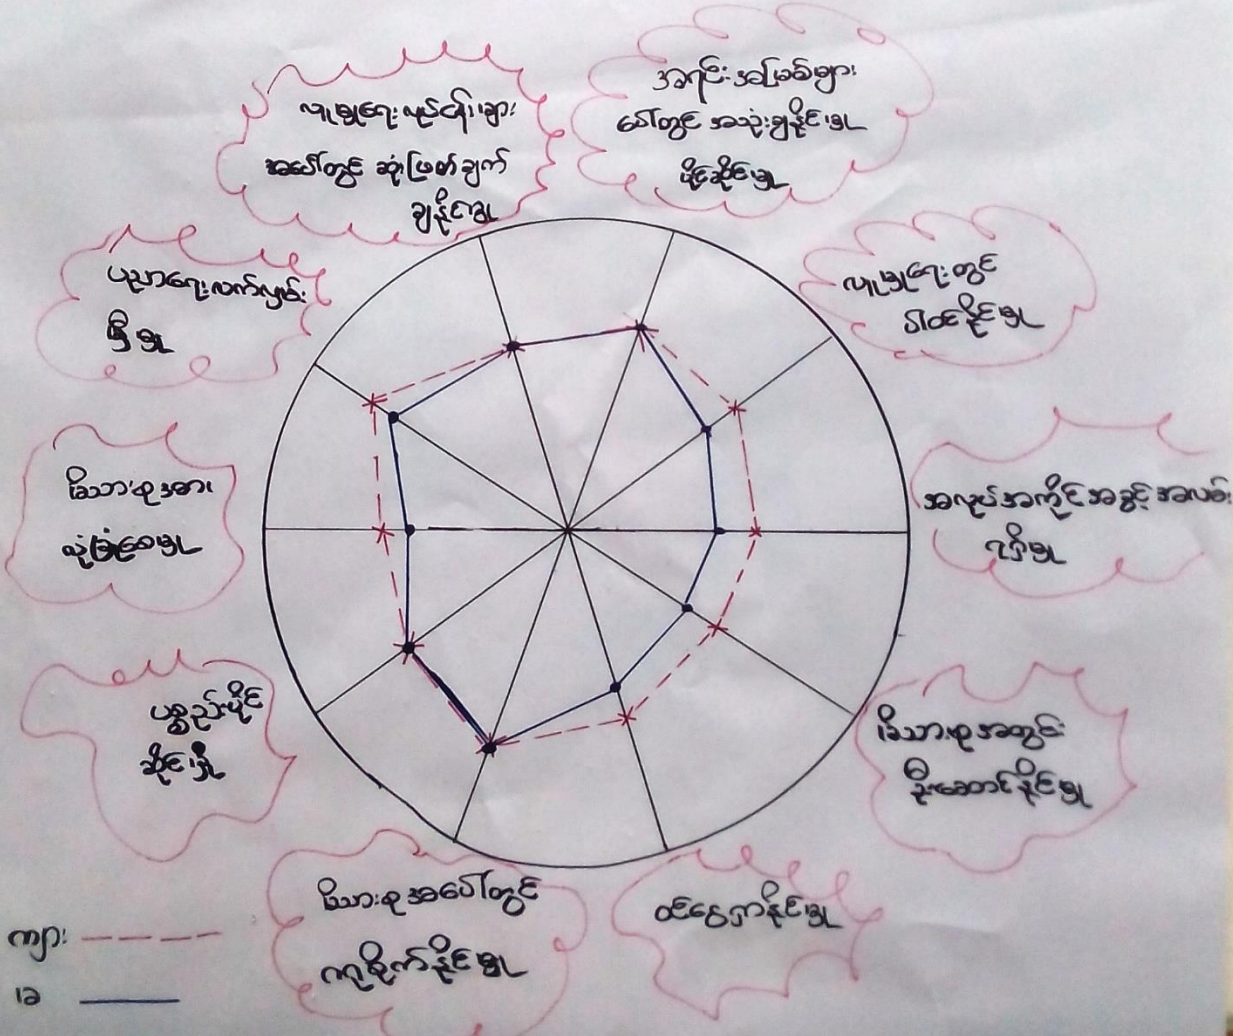 လူမှုရေးလုပ်ငန်းများ
အပေါ်တွင် ဆုံးဖြတ်ချက်
ချနိုင်မှု
အရင်းအမြစ်များ
ပေါ်တွင် အသုံးချနိုင်မှု
ပိုင်ဆိုင်မှု
လူမှုရေးတွင်
ပါဝင်နိုင်မှု
အလုပ်အကိုင်အခွင့်အလမ်း
ရရှိမှု
မိသားစုအတွင်း
ဦးဆောင်နိုင်မှု
ဝင်ငွေရှာနိုင်မှု
မိသားစုအပေါ်တွင်
ကုစိုက်နိုင်မှု
ပစ္စည်းပိုင်
ဆိုင်မှု
မိသားစုအား
လုံခြုံစေမှု
ပညာရေးလက်လှမ်း
မှီမှု
ကျား
မ